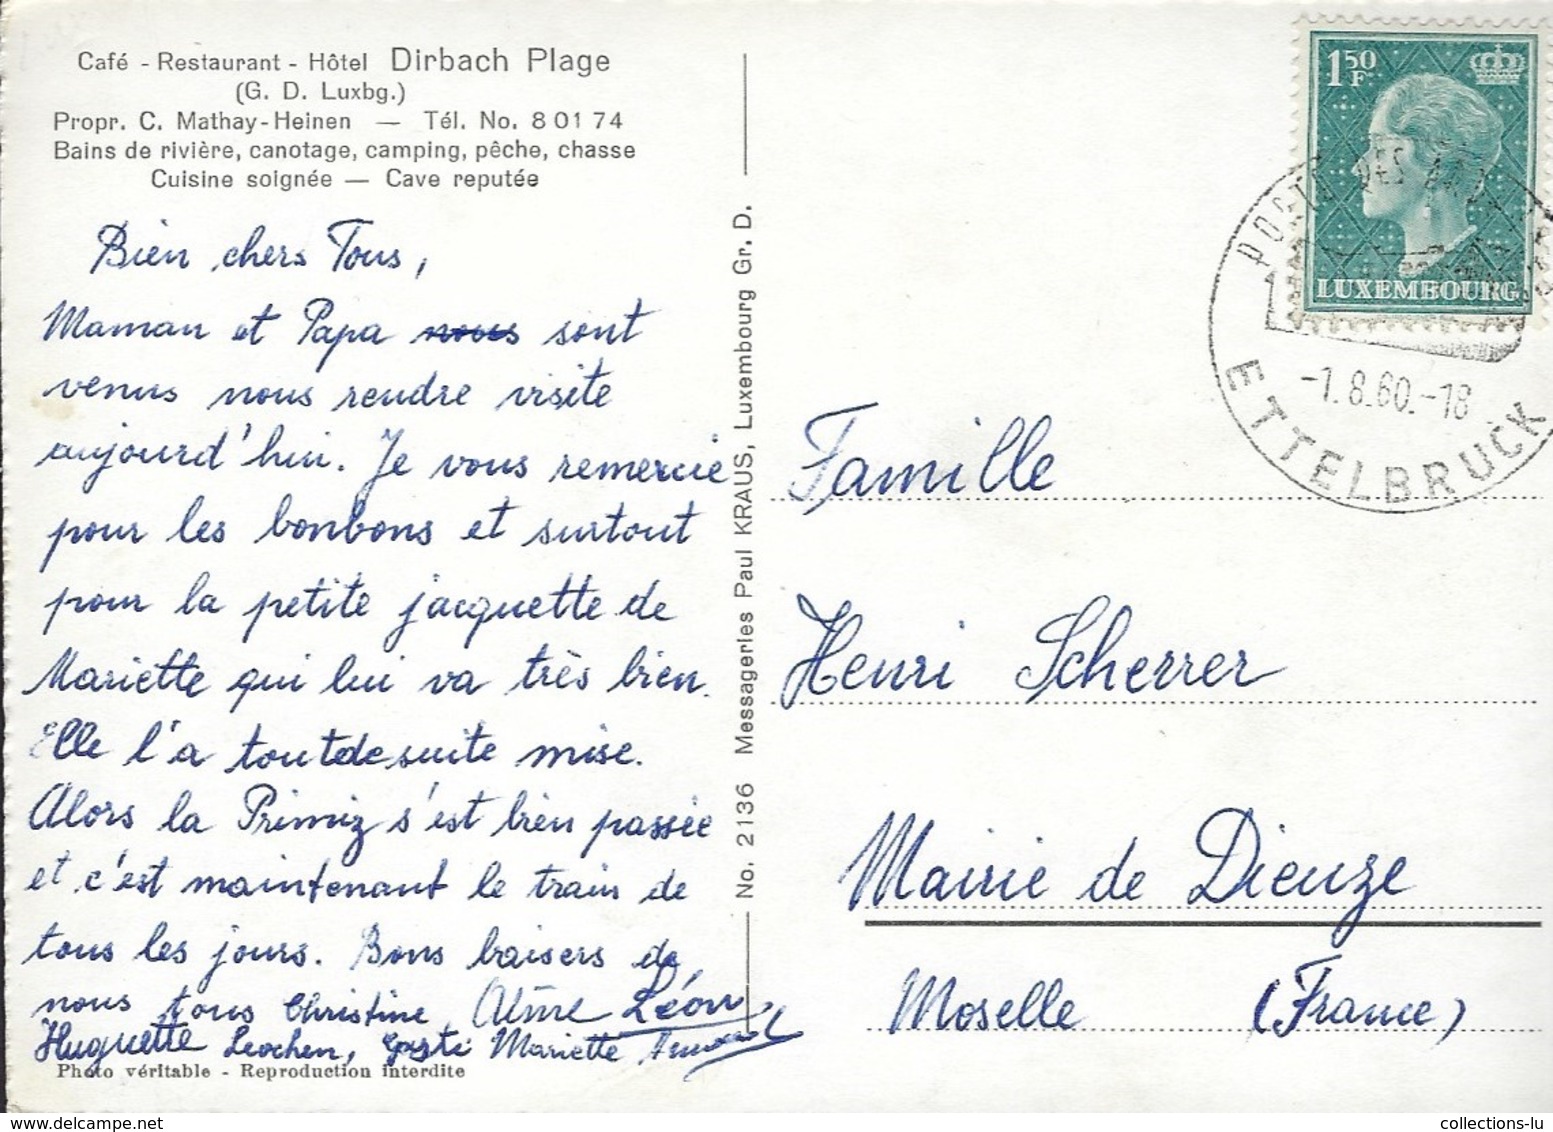 Café - Restaurant - Hôtel Dirbach Plage
(G. D. Luxbg.)
Propr. C. Mathay-Heinen — Tél. No. 8 01 74
Bains de rivière, canotage, camping, pêche, chasse
Cuisine soignée — Cave reputée
Bien chers Tous,
Maman et Papa nous sont
venus nous rendre visite
aujourd'hui. Je vous remercie
pour les bonbons et surtout
pour la petite jacquette de
Mariette qui lui va très bien.
Elle l'a toutdesuite mise.
Alors la Primiz s'est bien passée
et c'est maintenant le train de
tous les jours. Bons baisers de
nous tous Christine Aline Léon
Huguette Mariette
Photo véritable - Reproduction interdite
No. 2136 Messageries Paul KRAUS, Luxembourg Gr. D.
1,50 F
LUXEMBOURG
ETTELBRUCK
-1.8.60.-18
Famille
Henri Scherrer
Mairie de Dieuze
Moselle (France)
collections-lu